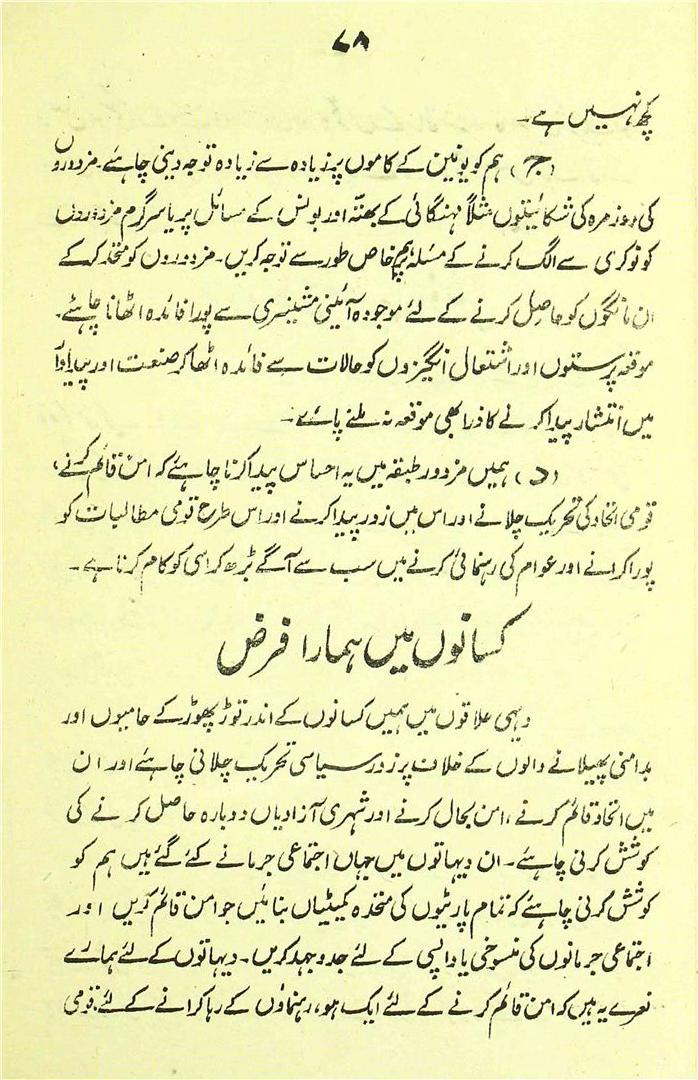 ۷۸
کچھ نہیں ہے۔
(ج) ہم کو یونین کے کاموں پر زیادہ سے زیادہ توجہ دینی چاہئے۔ مزدوروں
کی روزمرہ کی شکائیتوں مثلاً مہنگائی کے بھتہ اور بونس کے مسائل پر یا سرگرم مزدوروں
کو نوکری سے الگ کرنے کے مسئلہ پر ہم خاص طور سے توجہ کریں۔ مزدوروں کو متحد کر کے
ان مانگوں کو حاصل کرنے کے لئے موجودہ آئینی مشینری سے پورا فائدہ اٹھانا چاہئے۔
موقعہ پرستوں اور اشتعال انگیزوں کو حالات سے فائدہ اٹھا کر صنعت اور پیداوار
میں انتشار پیدا کرنے کا ذرا بھی موقعہ نہ ملنے پائے۔
(د) ہمیں مزدور طبقہ میں یہ احساس پیدا کرنا چاہئے کہ امن قائم کرنے،
قومی اتحاد کی تحریک چلانے اور اس میں زور پیدا کرنے اور اس طرح قومی مطالبات کو
پورا کرانے اور عوام کی رہنمائی کرنے میں سب سے آگے بڑھ کر اسی کو کام کرنا ہے۔
کسانوں میں ہمارا فرض
دیہی علاقوں میں ہمیں کسانوں کے اندر توڑ پھوڑ کے حامیوں اور
بدامنی پھیلانے والوں کے خلاف پر زور سیاسی تحریک چلانی چاہئے اور ان
میں اتحاد قائم کرنے، امن بحال کرنے اور شہری آزادیاں دوبارہ حاصل کرنے کی
کوشش کرنی چاہئے۔ ان دیہاتوں میں جہاں اجتماعی جرمانے کئے گئے ہیں ہم کو
کوشش کرنی چاہئے کہ تمام پارٹیوں کی متحدہ کمیٹیاں بنائیں جو امن قائم کریں اور
اجتماعی جرمانوں کی منسوخی یا واپسی کے لئے جدوجہد کریں۔ دیہاتوں کے لئے ہمارے
نعرے یہ ہیں کہ امن قائم کرنے کے لئے ایک ہو، رہنماؤں کے رہا کرانے کے لئے، قومی